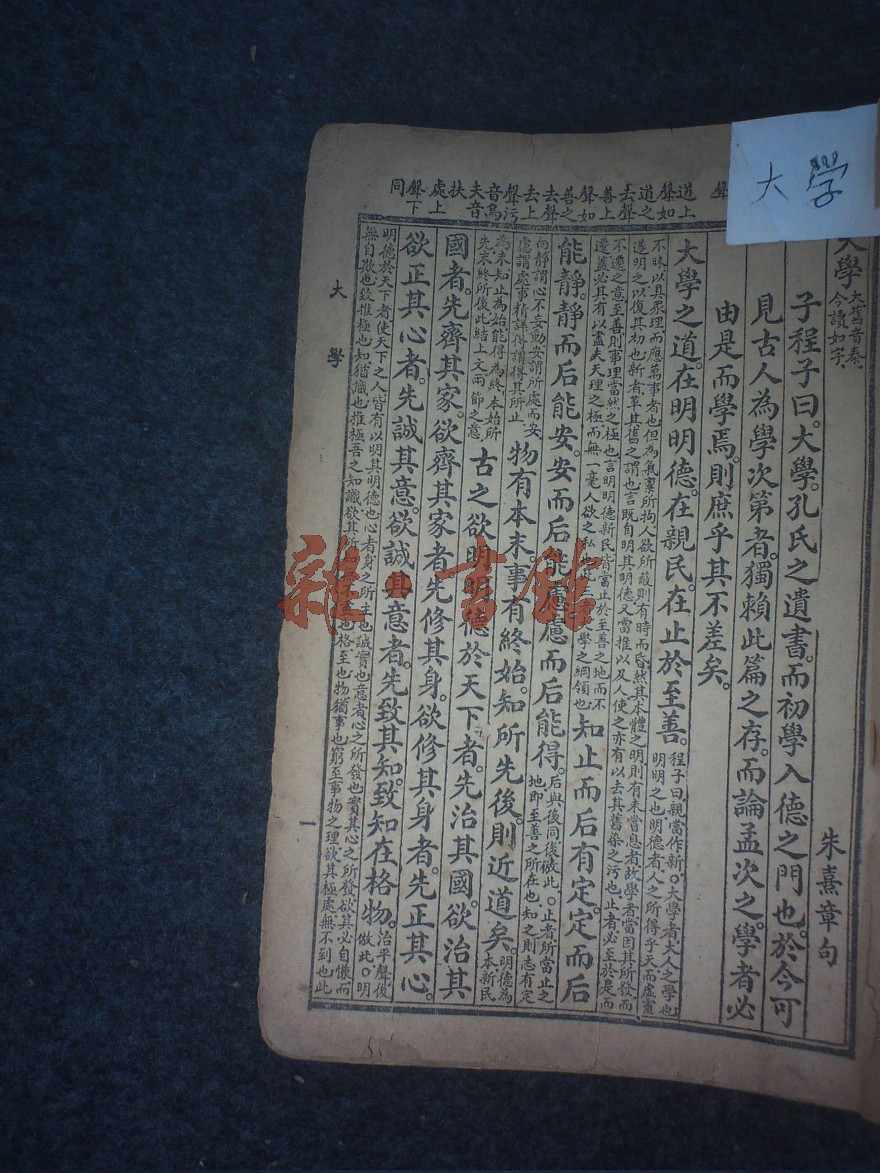 大學
大學大舊音泰、
今讀如字、
朱熹章句
子程子曰。大學。孔氏之遺書。而初學入德之門也。於今可
見古人為學次第者。獨賴此篇之存。而論孟次之。學者必
由是而學焉。則庶乎其不差矣。
大學之道。在明明德。在親民。在止於至善。程子曰親當作新。○大學者大人之學也
明明之也明德者人之所得乎天而虛靈
不昧以具眾理而應萬事者也但為氣稟所拘人欲所蔽則有時而昏然其本體之明則有未嘗息者故學者當因其所發而
遂明之以復其初也新者革其舊之謂也言既自明其明德又當推以及人使之亦有以去其舊染之污也止者必至於是而
不遷之意至善則事理當然之極也言明明德新民皆當止於至善之地而不
遷蓋必其有以盡夫天理之極而無一毫人欲之私也此
大學之綱領也
知止而后有定。定而后
能靜。靜而后能安。安而后能慮。慮而后能得。后與後同後倣此。○止者所當止之
地即至善之所在也知之則志有定
向靜謂心不妄動安謂所處而安
慮謂處事精詳得謂得其所止
物有本末。事有終始。知所先後。則近道矣。明德為
本新民
為末知止為始能得為終本始所
先末終所後此結上文兩節之意
古之欲明明德於天下者。先治其國。欲治其
國者。先齊其家。欲齊其家者。先修其身。欲修其身者。先正其心。
欲正其心者。先誠其意。欲誠其意者。先致其知。致知在格物。治平聲後
倣此。○明
明德於天下者使天下之人皆有以明其明德也心者身之所主也誠實也意者心之所發也實其心之所發欲其必自慊而
無自欺也致推極也知猶識也推極吾之知識欲其所知無不盡也格至也物猶事也窮至事物之理欲其極處無不到也此
聲
道上
聲如
道之
去聲
善上
聲如
善之
去聲
去上
聲污
音烏
夫音
扶
處上
聲下
同
大學
一
雜·書館